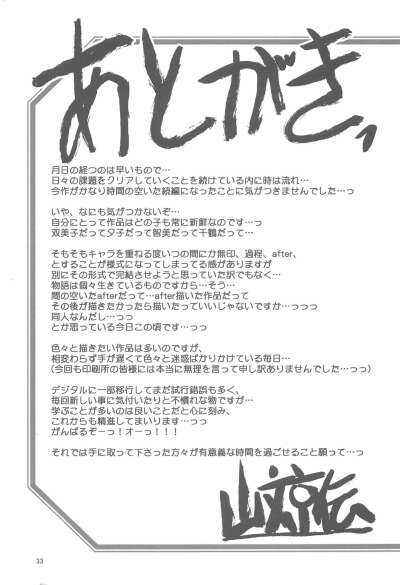 あとがき、
月日の経つのは早いもので…
日々の課題をクリアしていくことを続けている内に時は流れ…
今作がかなり時間の空いた続編になったことに気がつきませんでした…っ
いや、なにも気がつかないぞ…
自分にとって作品はどの子も常に新鮮なのです…っ
双美子だって夕子だって智美だって千鶴だって…っ
そもそもキャラを重ねる度いつの間にか無印、過程、after、
とすることが様式になってしまってる感がありますが
別にその形式で完結させようと思っていた訳でもなく…
物語は個々生きているものですから…そう…
間の空いたafterだって…after描いた作品だって
その後が描きたかったら描いたっていいじゃないですか…っっっ
同人なんだし…っっ
とか思っている今日この頃です…っっ
色々と描きたい作品は多いのですが、
相変わらず手が遅くて色々と迷惑ばかりかけている毎日…
(今回も印刷所の皆様には本当に無理を言って申し訳ありませんでした…っっ)
デジタルに一部移行してまだ試行錯誤も多く、
毎回新しい事に気付いたりと不慣れな物ですが、
学ぶことが多いのは良いことだと心に刻み、
これからも精進してまいります…っっ
がんばるぞーっ！オーっ！！！
それでは手に取って下さった方々が有意義な時間を過ごせること願って…っ
山文京伝
33